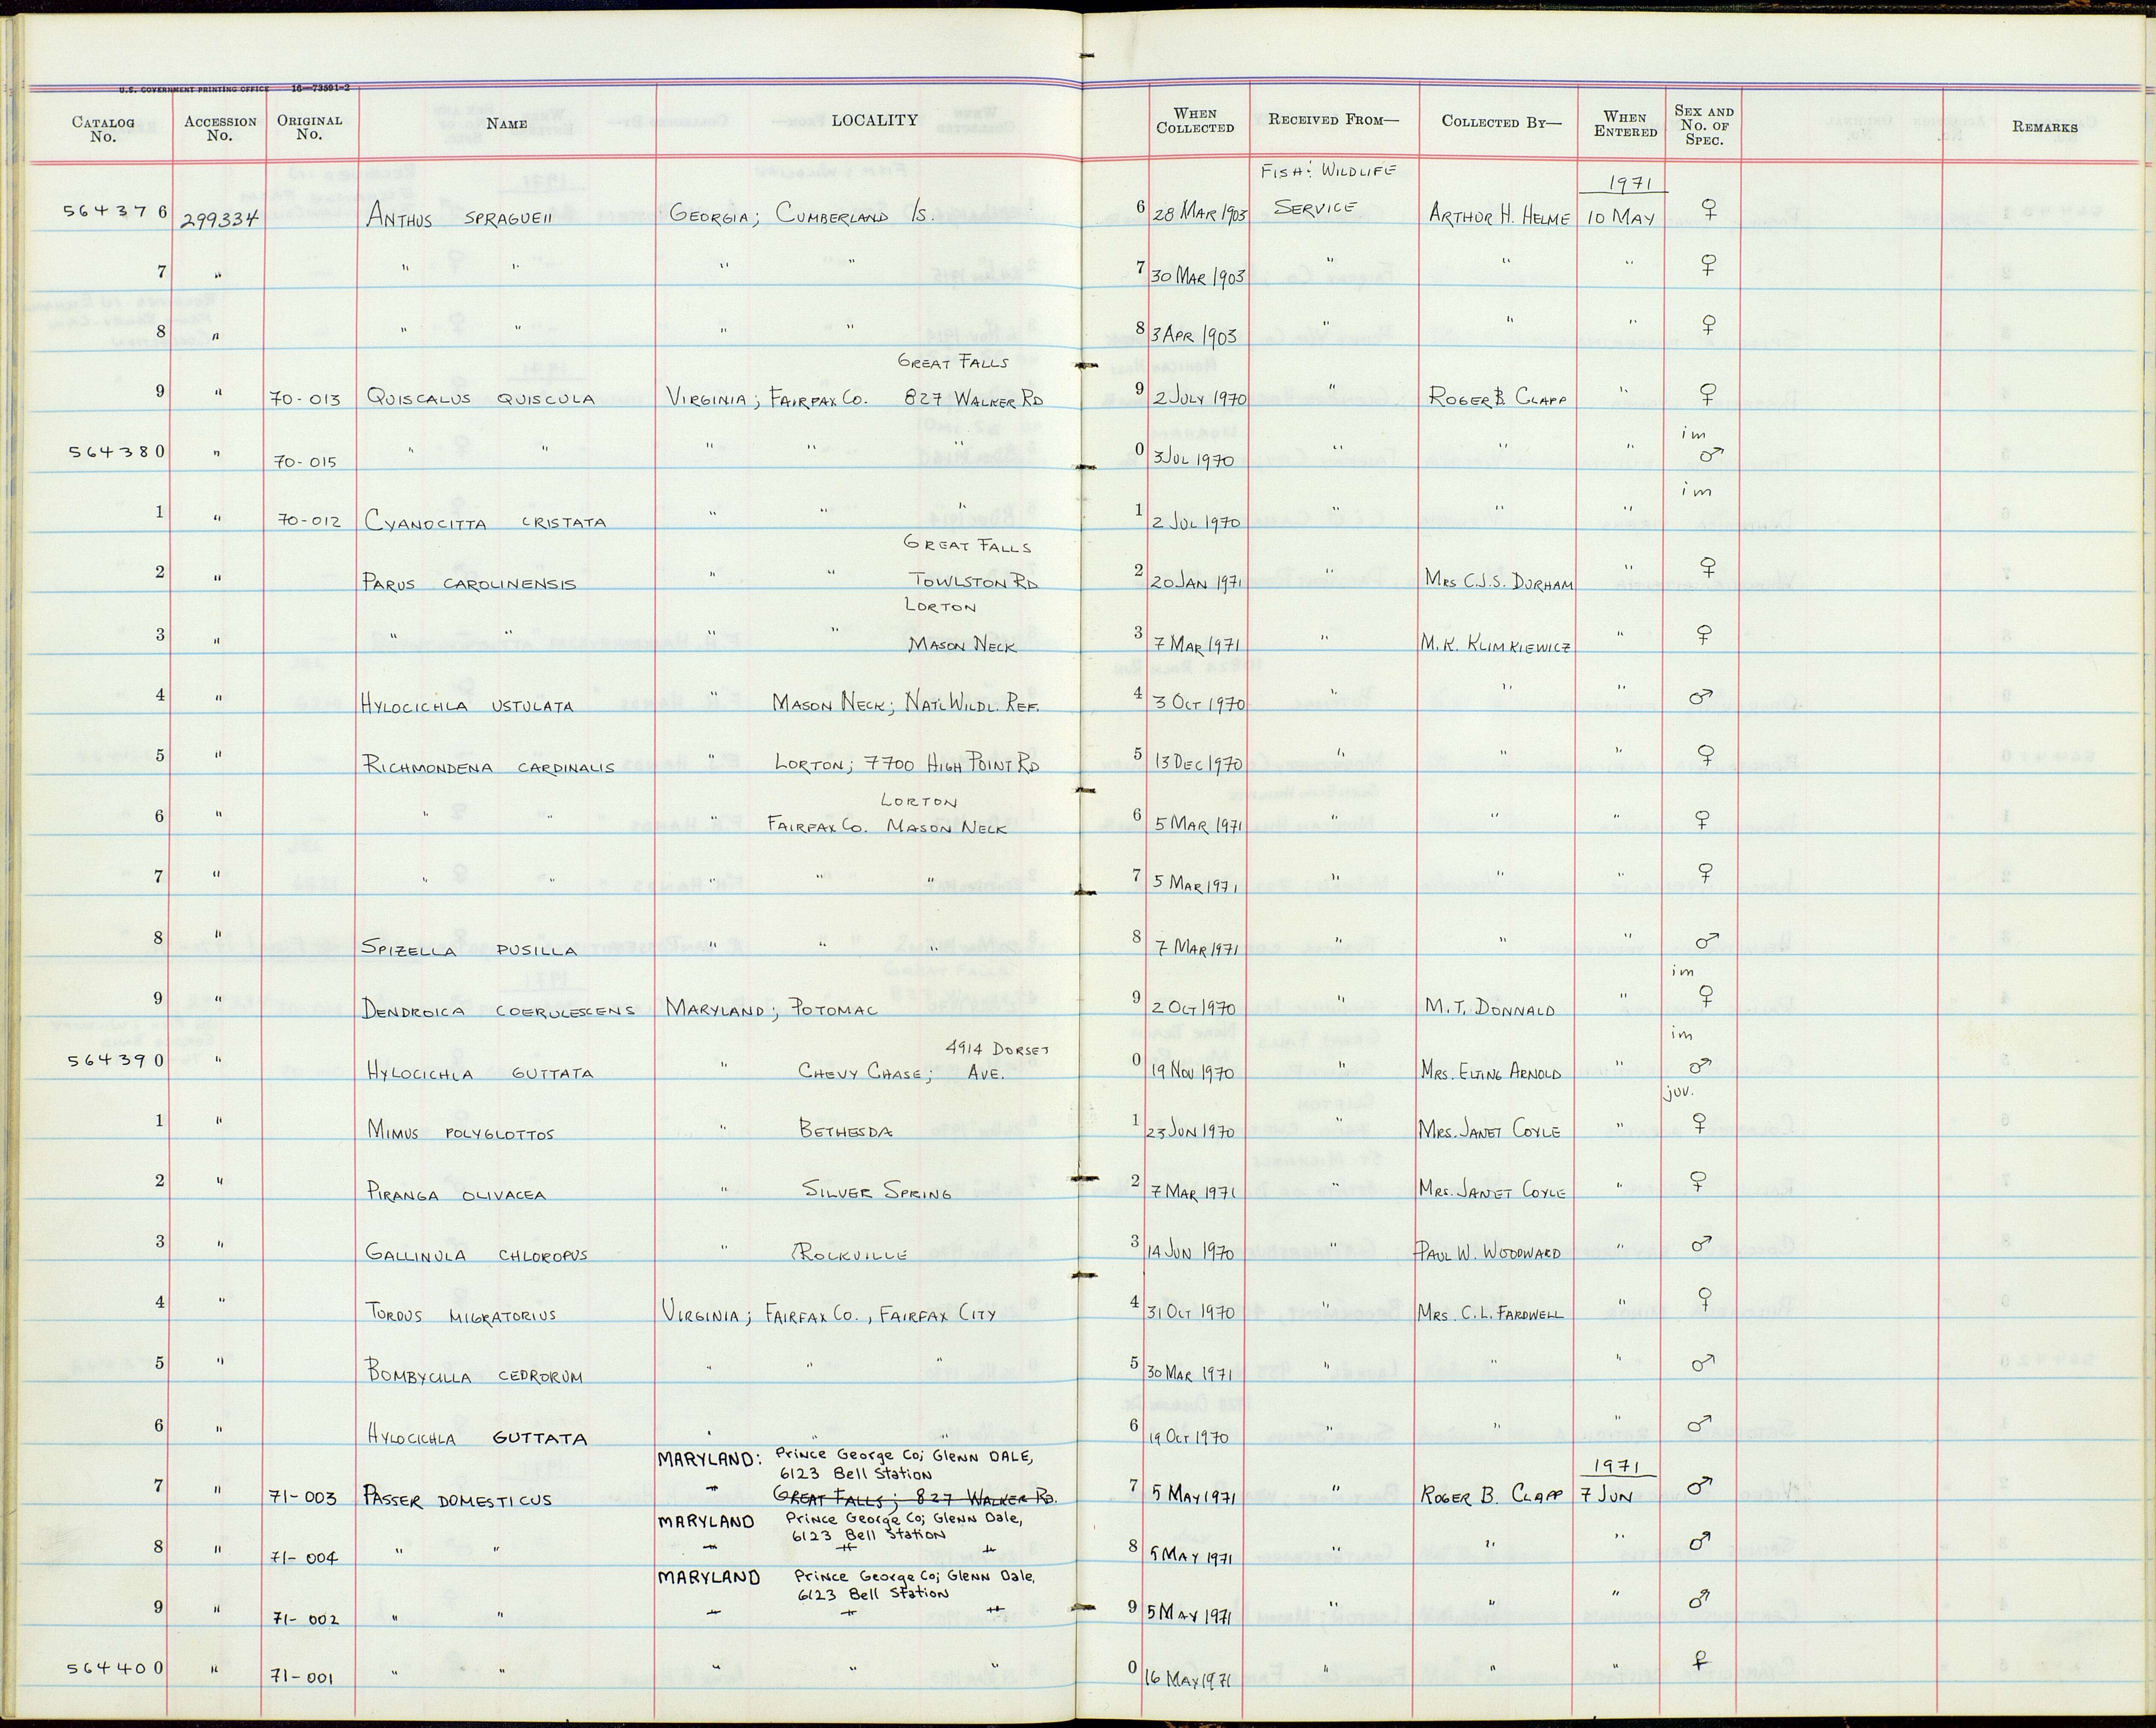 U.S. GOVERNMENT PRINTING OFFICE 16—73591-2
CATALOG No. ACCESSION No. ORIGINAL No. NAME LOCALITY WHEN COLLECTED RECEIVED FROM— COLLECTED BY— WHEN ENTERED SEX AND No. OF SPEC. REMARKS
FISH & WILDLIFE 1971
564376 299334 ANTHUS SPRAGUEII GEORGIA; CUMBERLAND IS. 6 28 MAR 1903 SERVICE ARTHUR H. HELME 10 MAY ♀
7 " " " " " 7 30 MAR 1903 " " " ♀
8 " " " " " 8 3 APR 1903 " " " ♀
GREAT FALLS
9 " 70-013 QUISCALUS QUISCULA VIRGINIA; FAIRFAX CO. 827 WALKER RD 9 2 JULY 1970 " ROGER B. CLAPP " ♀
im
564380 " 70-015 " " " " " 0 3 JUL 1970 " " " ♂
im
1 " 70-012 CYANOCITTA CRISTATA " " " 1 2 JUL 1970 " " "
GREAT FALLS
2 " PARUS CAROLINENSIS " " TOWLSTON RD 2 20 JAN 1971 " MRS C.J.S. DURHAM " ♀
LORTON
3 " " " " " MASON NECK 3 7 MAR 1971 " M.K. KLIMKIEWICZ " ♀
4 " HYLOCICHLA USTULATA " MASON NECK; NATL WILDL. REF. 4 3 OCT 1970 " " " ♂
5 " RICHMONDENA CARDINALIS " LORTON; 7700 HIGH POINT RD 5 13 DEC 1970 " " " ♀
LORTON
6 " " " " FAIRFAX CO. MASON NECK 6 5 MAR 1971 " " " ♀
7 " " " " " " 7 5 MAR 1971 " " " ♀
8 " SPIZELLA PUSILLA " " " 8 7 MAR 1971 " " " ♂
im
9 " DENDROICA COERULESCENS MARYLAND; POTOMAC 9 2 OCT 1970 " M.T. DONNALD " ♀
4914 DORSET im
564390 " HYLOCICHLA GUTTATA " CHEVY CHASE; AVE. 0 19 NOV 1970 " MRS. ELTING ARNOLD " ♂
juv.
1 " MIMUS POLYGLOTTOS " BETHESDA 1 23 JUN 1970 " MRS. JANET COYLE " ♀
2 " PIRANGA OLIVACEA " SILVER SPRING 2 7 MAR 1971 " MRS. JANET COYLE " ♀
3 " GALLINULA CHLOROPUS " ROCKVILLE 3 14 JUN 1970 " PAUL W. WOODWARD " ♂
4 " TURDUS MIGRATORIUS VIRGINIA; FAIRFAX CO., FAIRFAX CITY 4 31 OCT 1970 " MRS. C.L. FARDWELL " ♀
5 " BOMBYCILLA CEDRORUM " " " 5 30 MAR 1971 " " " ♂
6 " HYLOCICHLA GUTTATA " " " 6 19 OCT 1970 " " " ♂
MARYLAND: Prince George Co; Glenn DALE,
6123 Bell Station 1971
7 " 71-003 PASSER DOMESTICUS " GREAT FALLS; 827 WALKER RD. 7 5 MAY 1971 " ROGER B. CLAPP 7 JUN ♂
MARYLAND Prince George Co; Glenn Dale,
6123 Bell Station
8 " 71-004 " " " " " 8 5 MAY 1971 " " " ♂
MARYLAND Prince George Co; Glenn Dale,
6123 Bell Station
9 " 71-002 " " " " " 9 5 MAY 1971 " " " ♂
564400 " 71-001 " " " " " 0 16 MAY 1971 " " " ♀